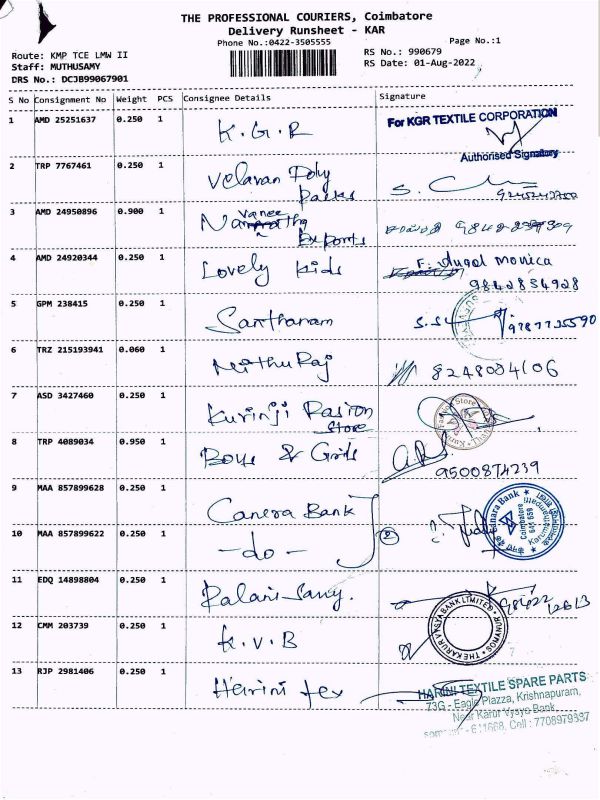 THE PROFESSIONAL COURIERS, Coimbatore
Delivery Runsheet - KAR
Phone No.:0422-3505555
Page No.:1
Route: KMP TCE LMW II
RS No.: 990679
Staff: MUTHUSAMY
RS Date: 01-Aug-2022
DRS No.: DCJB99067901
S No Consignment No Weight PCS Consignee Details Signature
1 AMD 25251637 0.250 1 K.G.R For KGR TEXTILE CORPORATION
Authorised Signatory
2 TRP 7767461 0.250 1 Velavan Poly
Packs
3 AMD 24950896 0.900 1 Vanee
Exports
4 AMD 24920344 0.250 1 Lovely Kids F. Angel Monica
9842834928
5 GPM 238415 0.250 1 Santhanam
6 TRZ 215193941 0.060 1 Mithu Raj 8248004106
7 ASD 3427460 0.250 1 Kurinji Fasion
Store
8 TRP 4089034 0.950 1 Boys & Girls
9500874239
9 MAA 857899628 0.250 1 Canera Bank
Canara Bank
Coimbatore
10 MAA 857899622 0.250 1 -do- 2
11 EDQ 14898804 0.250 1 Palani Samy.
12 CMM 203739 0.250 1 K.V.B
THE KARUR VYSYA BANK LIMITED
SOMANUR
13 RJP 2981406 0.250 1 Harini tex HARINI TEXTILE SPARE PARTS
73G - Eagle Plazza, Krishnapuram,
Near Karur Vysya Bank,
Cell : 7708979337